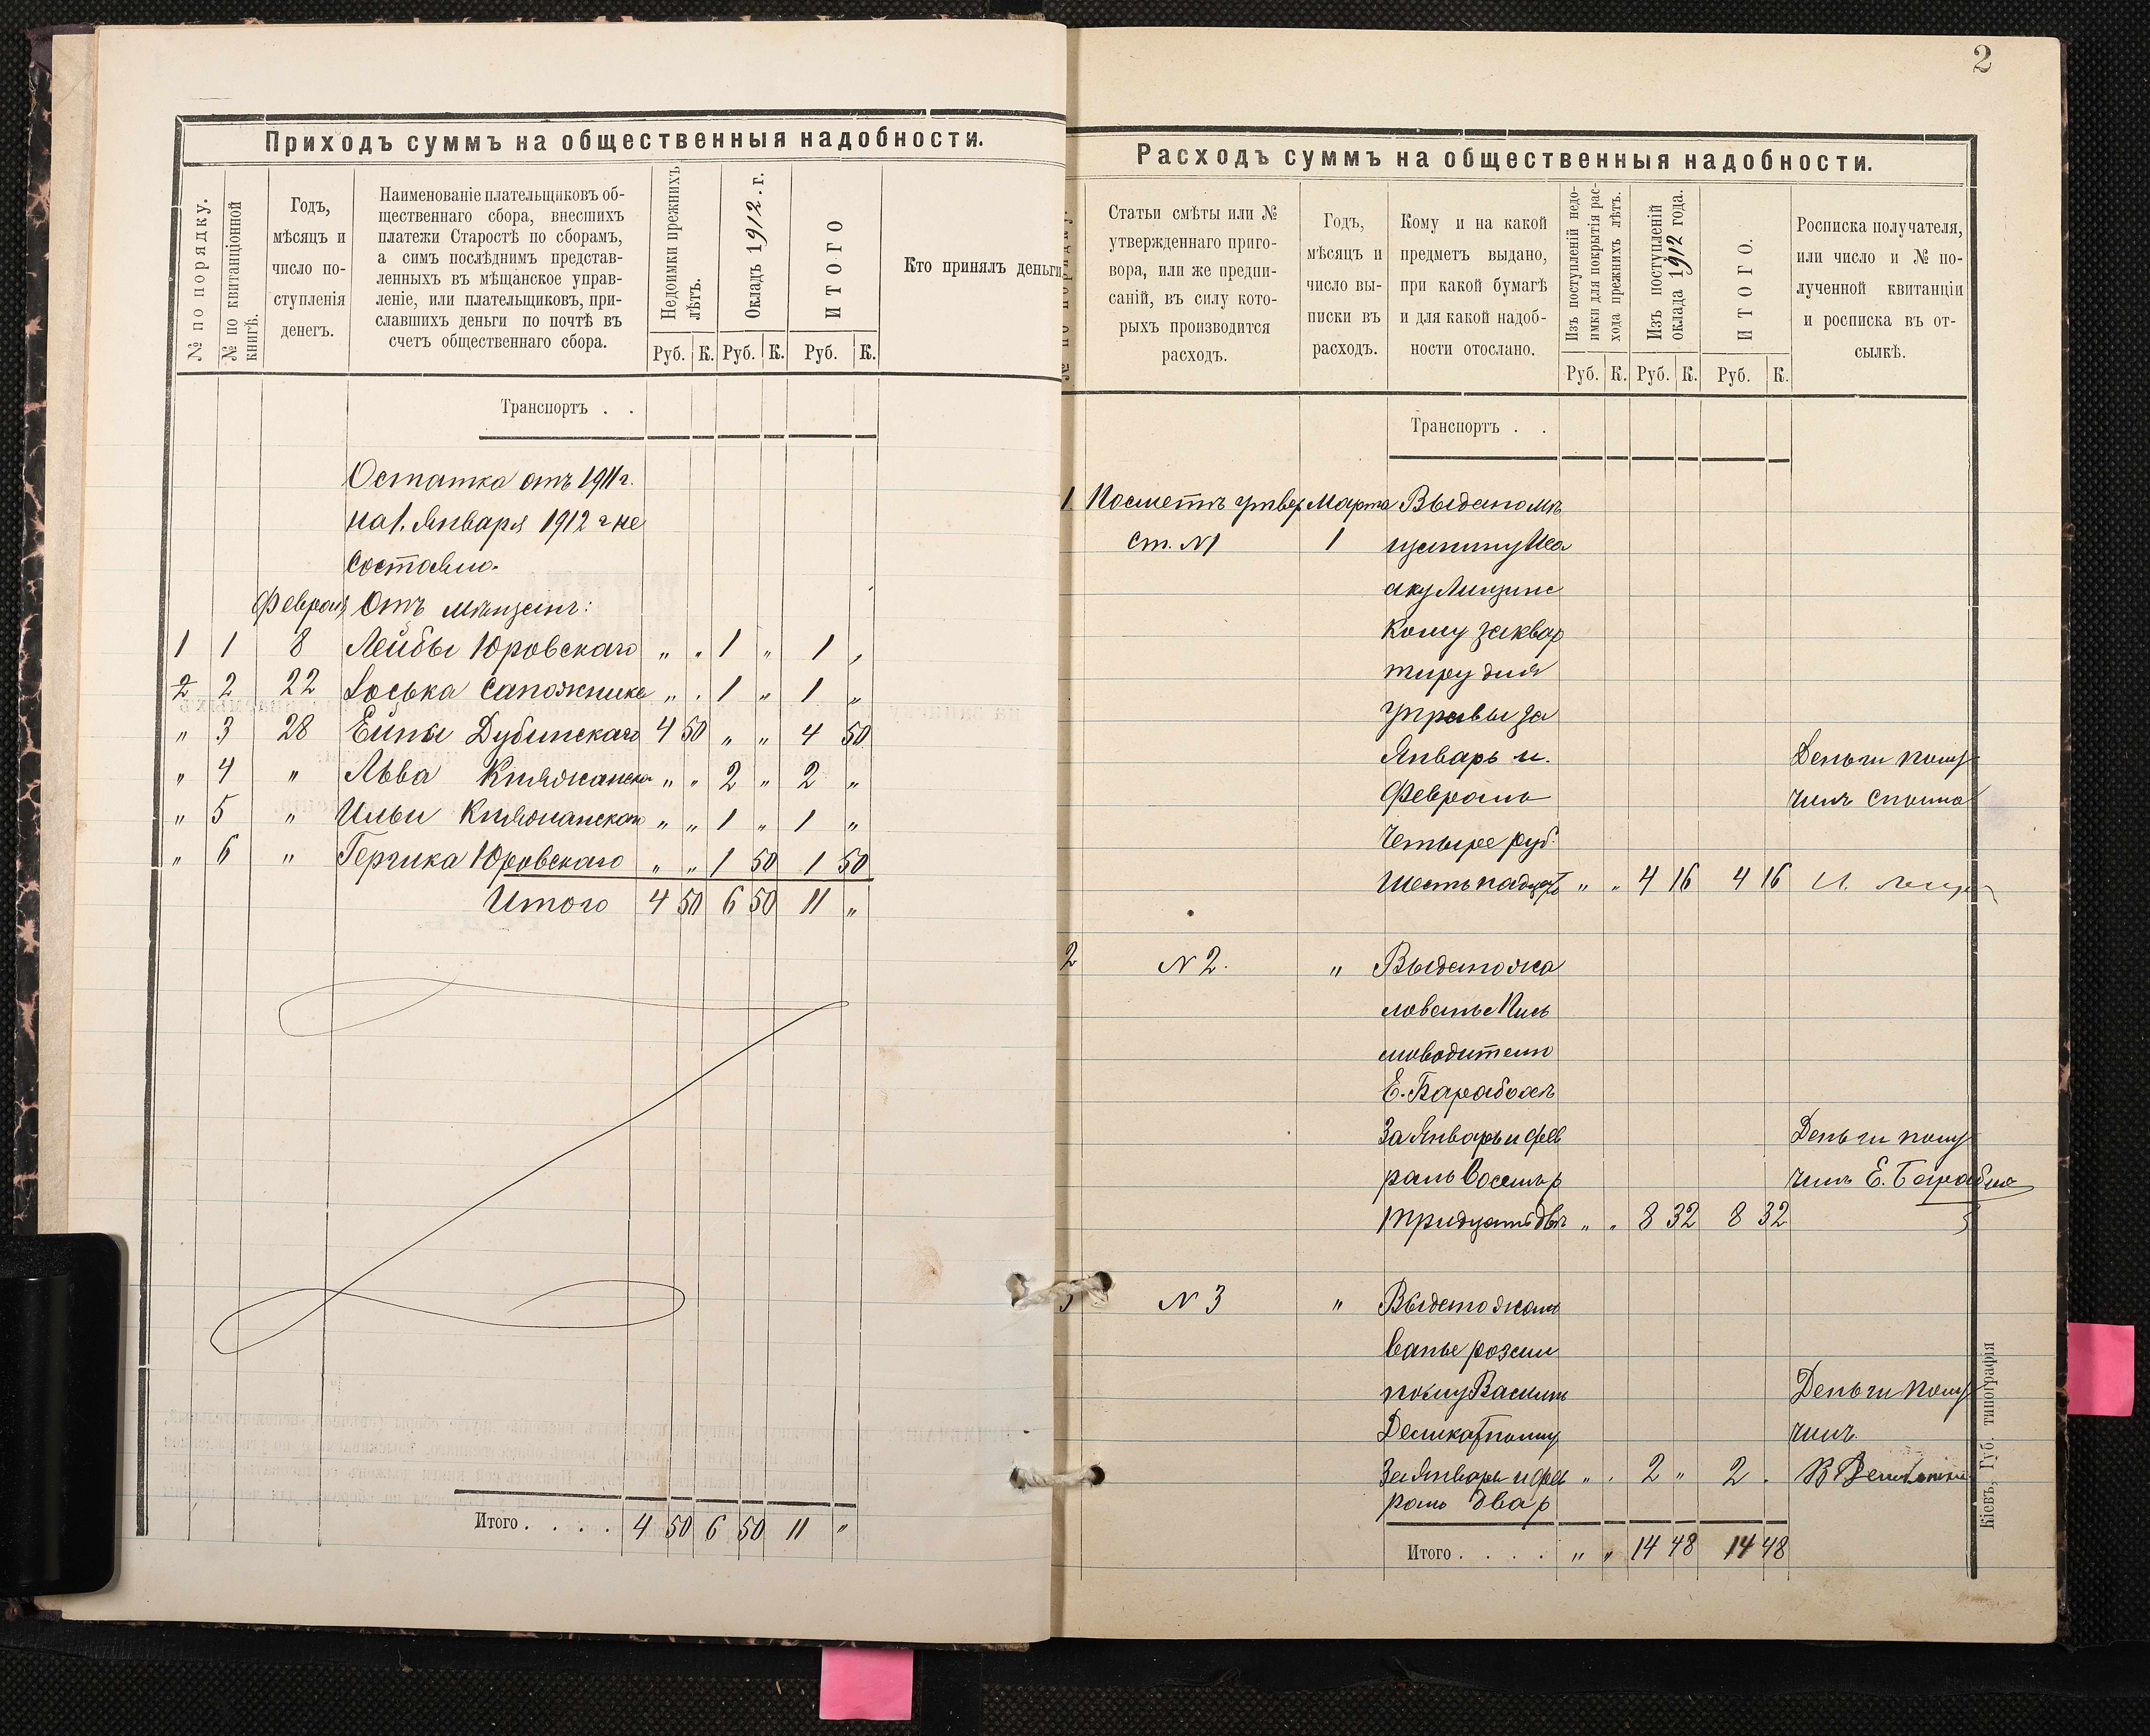 2
Приходъ суммъ на общественныя надобности.
№ по порядку.
№ по квитанціонной
книгѣ.
Годъ,
мѣсяцъ и
число по-
ступленія
денегъ.
Наименованіе плательщиковъ об-
щественнаго сбора, внесшихъ
платежи Старостѣ по сборамъ,
а симъ послѣднимъ представ-
ленныхъ въ мѣщанское управ-
леніе, или плательщиковъ, при-
славшихъ деньги по почтѣ въ
счетъ общественнаго сбора.
Недоимки прежнихъ
лѣтъ.
Окладъ 1912. г.
ИТОГО
Кто принялъ деньги
Руб. К. Руб. К. Руб. К.
Транспортъ . .
Остатка отъ 1911 г.
на 1. Января 1912 г не
состояло.
Февраля Отъ мѣщанъ:
1 1 8 Лейбы Юровскаго „ „ 1 „ 1 „
2 2 22 Іоська Сапожника „ „ 1 „ 1 „
„ 3 28 Дубинскаго 4 50 „ „ 4 50
„ 4 „ Льва „ „ 2 „ 2 „
„ 5 „ Ильи „ „ 1 „ 1 „
„ 6 „ Гершка Юровскаго „ „ 1 50 1 50
Итого 4 50 6 50 11 „
Итого . . . . 4 50 6 50 11 „
Расходъ суммъ на общественныя надобности.
Статьи смѣты или №
утвержденнаго приго-
вора, или же предпи-
саній, въ силу кото-
рыхъ производится
расходъ.
Годъ,
мѣсяцъ и
число вы-
писки въ
расходъ.
Кому и на какой
предметъ выдано,
при какой бумагѣ
и для какой надоб-
ности отослано.
Изъ поступленій недо-
имки для покрытія рас-
хода прежнихъ лѣтъ.
Изъ поступленій
оклада 1912 года.
ИТОГО.
Росписка получателя,
или число и № по-
лученной квитанціи
и росписка въ от-
сылкѣ.
Руб. К. Руб. К. Руб. К.
Транспортъ . .
1 По смѣтѣ утвер Марта Выдано мѣ
ст. № 1 1 щанину Иса
аку Лищинс
кому за квар
тиру для
управы за
Январь и. Деньги полу
Февраль чилъ сполна
Четыре руб.
шестнадцать „ „ 4 16 4 16
2 № 2. „ Выдано жа
лованье Пись
моводителю
Е.
За Январь и Фев Деньги полу
раль Восемь р чилъ Е.
тридцать двѣ „ „ 8 32 8 32
3 № 3 „ Выдано жало
ванье розсил
ному Василію
Деньги полу
чилъ.
За Январь и Фев „ . 2 „ 2 .
раль два р
Итого . . . . „ „ 14 48 14 48
Кіевъ, Губ. типографія